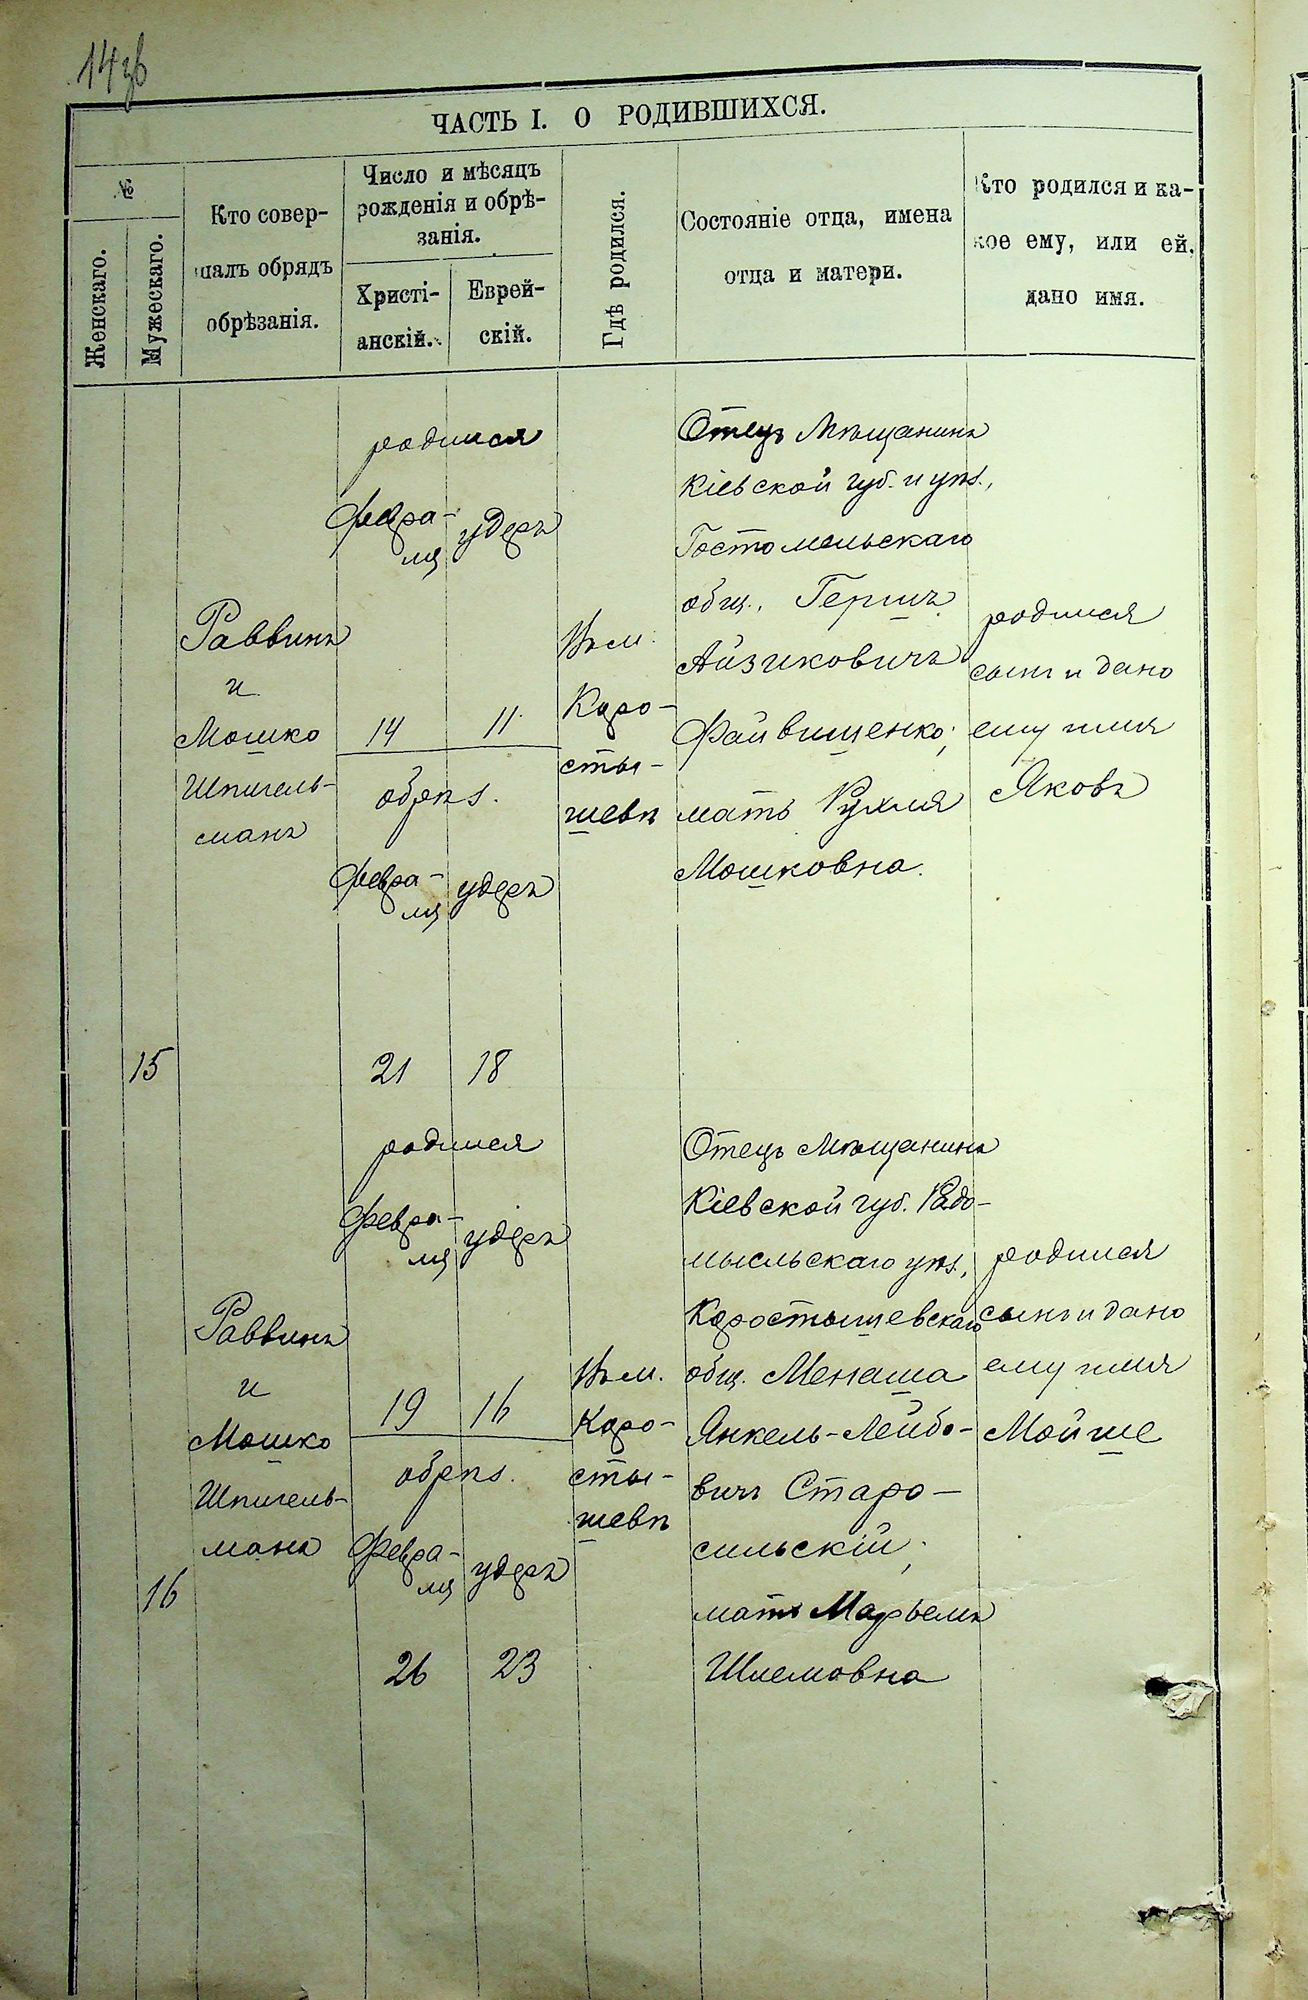 14 зв
ЧАСТЬ I. О РОДИВШИХСЯ.
№
Женскаго.
Мужескаго.
Кто совер-
шалъ обрядъ
обрѣзанія.
Число и мѣсяцъ
рожденія и обрѣ-
занія.
Христі-
анскій.
Еврей-
скій.
Гдѣ родился.
Состояніе отца, имена
отца и матери.
Кто родился и ка-
кое ему, или ей,
дано имя.
15
Раввинъ
и
Мошко
Шпигель-
манъ
родился
Февра-
ля
удеръ
14
11
обрѣз.
Февра-
ля
удеръ
21
18
Въ м.
Коро-
сты-
шевѣ
Отецъ Мѣщанинъ
Кіевской губ. и уѣз.,
Гостомельскаго
общ., Гершъ
Айзиковичъ
Файвишенко;
мать Рухля
Мошковна.
родился
сынъ и дано
ему имя
Яковъ
16
Раввинъ
и
Мошко
Шпигель-
манъ
родился
Февра-
ля
удеръ
19
16
обрѣз.
Февра-
ля
удеръ
26
23
Въ м.
Коро-
сты-
шевѣ
Отецъ Мѣщанинъ
Кіевской губ. Радо-
мысльскаго уѣз.,
Коростышевскаго
общ. Менаша
Янкель-Лейбо-
вичъ Старо-
сильскій;
мать Марьемъ
Шлемовна
родился
сынъ и дано
ему имя
Мойше